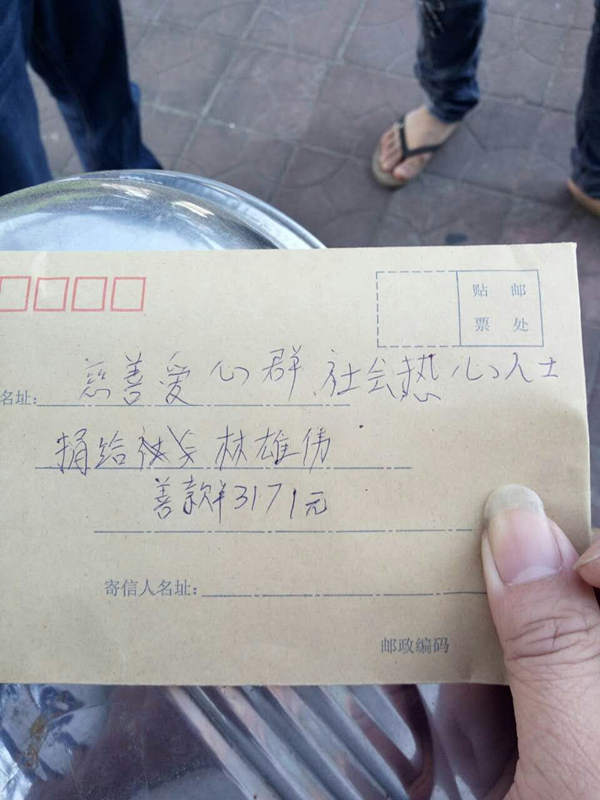 贴 邮
票 处
名址: 慈善爱心群 社会热心人士
捐给 林雄伟
善款¥3171元
寄信人名址:
邮政编码